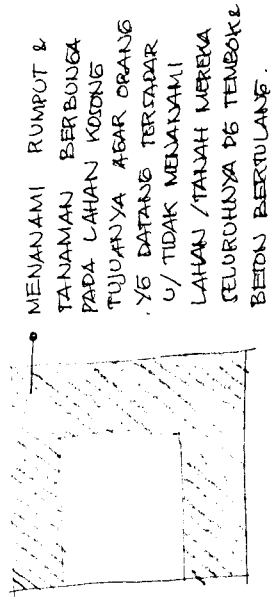 MENANAMI RUMPUT &
TANAMAN BERBUNGA
PADA LAHAN KOSONG
TUJUANYA AGAR ORANG
YG DATANG TERSADAR
U/ TIDAK MENANAMI
LAHAN / TANAH MEREKA
SELURUHNYA DG TEMBOK &
BETON BERTULANG.